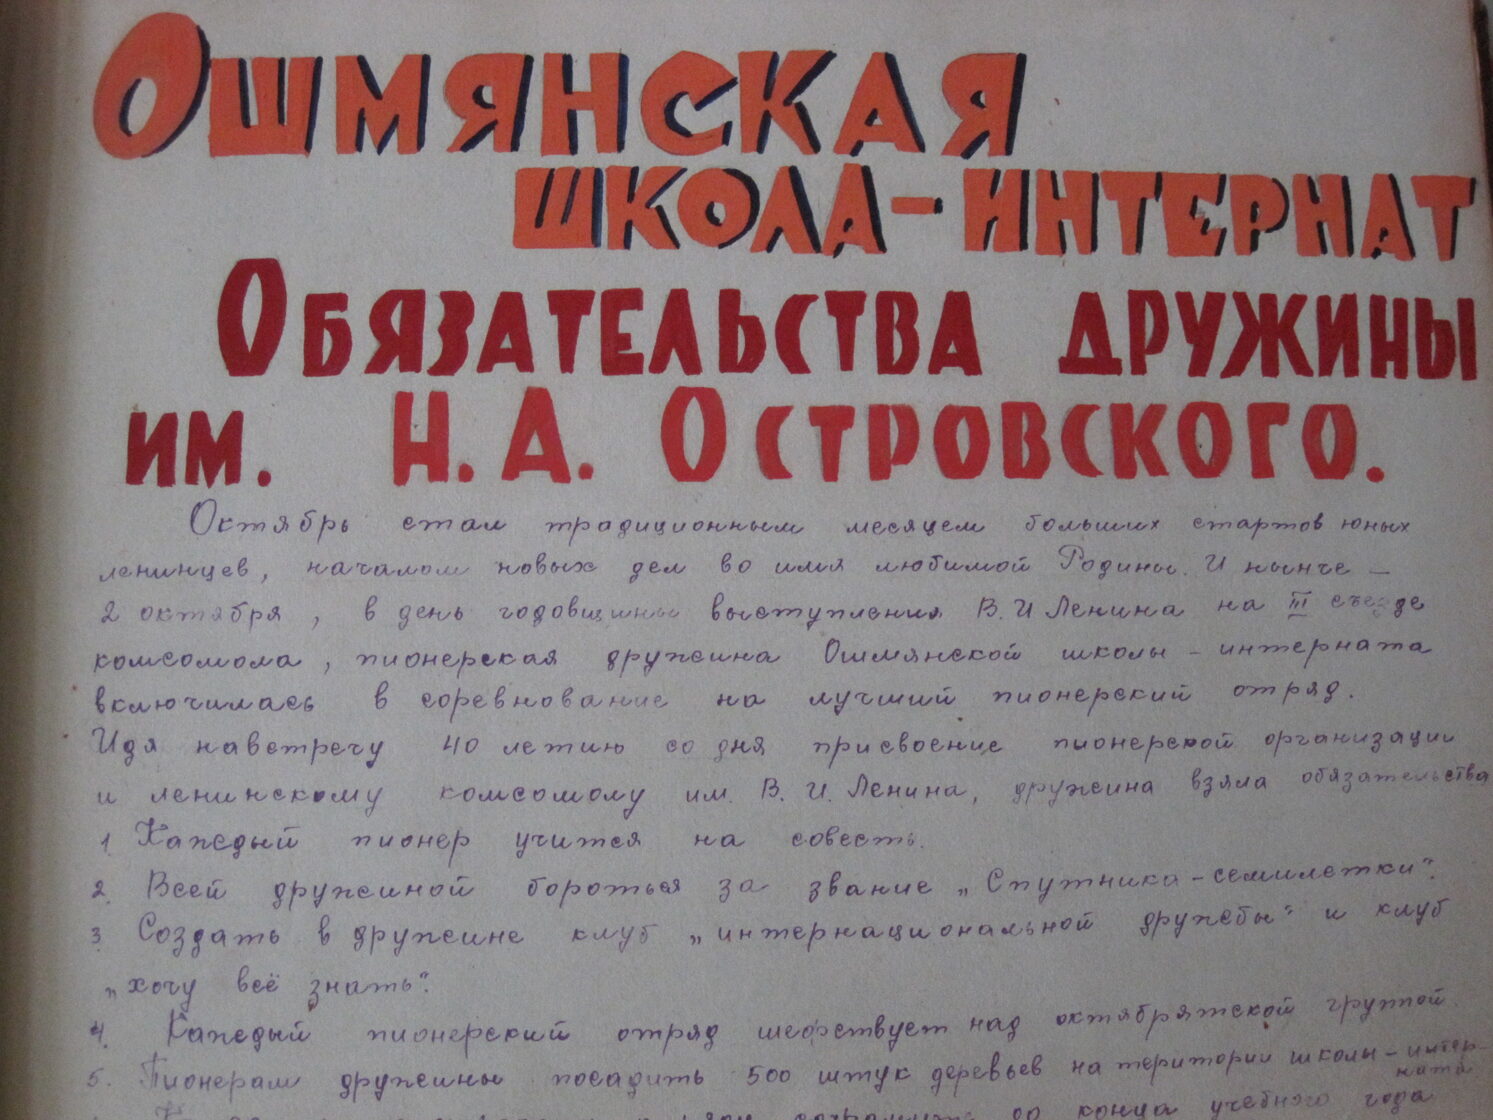 Ошмянская
школа-интернат
Обязательства дружины
им. Н.А. Островского.
Октябрь стал традиционным месяцем больших стартов юных
ленинцев, началом новых дел во имя любимой Родины. И нынче –
2 октября, в день годовщины выступления В.И Ленина на III съезде
комсомола, пионерская дружина Ошмянской школы-интерната
включилась в соревнование на лучший пионерский отряд.
Идя навстречу 40 летию со дня присвоение пионерской организации
и ленинскому комсомолу им. В.И. Ленина, дружина взяла обязательства
1. Каждый пионер учится на совесть.
2. Всей дружиной бороться за звание „Спутника-семилетки".
3. Создать в дружине клуб „интернациональной дружбы" и клуб
„хочу всё знать".
4. Каждый пионерский отряд шефствует над октябрятской группой
5. Пионерам дружины посадить 500 штук деревьев на територии школы-интер-
ната
до конца учебного года